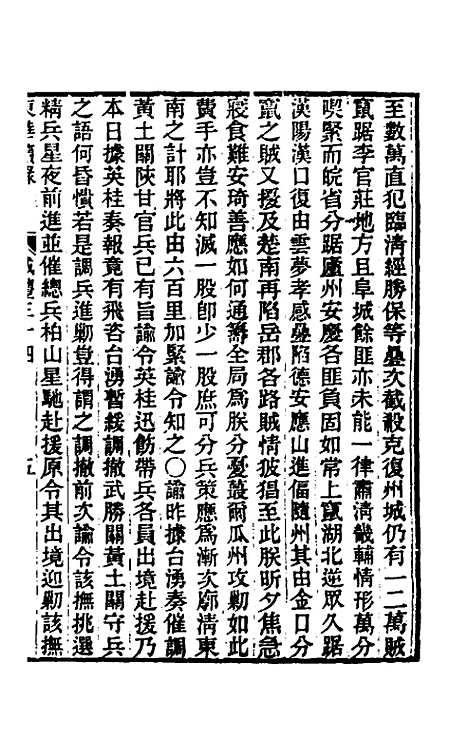 至數萬直犯臨淸經勝保等曡次截殺克復州城仍有一二萬賊
竄踞李官莊地方且阜城餘匪亦未能一律肅淸畿輔情形萬分
喫緊而皖省分踞廬州安慶各匪負固如常上竄湖北逆眾久踞
漢陽漢口復由雲夢孝感曡陷德安應山進偪隨州其由金口分
竄之賊又擾及楚南再陷岳郡各路賊情披猖至此朕昕夕焦急
寢食難安琦善應如何通籌全局爲朕分憂蕞爾瓜州攻勦如此
費手亦豈不知滅一股卽少一股庶可分兵策應爲漸次廓淸東
南之計耶將此由六百里加緊諭令知之〇諭昨據台湧奏催調
黃土關陝甘官兵已有旨諭令英桂迅飭帶兵各員出境赴援乃
本日據英桂奏報竟有飛咨台湧暫緩調撤武勝關黃土關守兵
之語何昏憒若是調兵進勦豈得謂之調撤前次諭令該撫挑選
精兵星夜前進並催總兵柏山星馳赴援原令其出境迎勦該撫
東華續錄 咸豐三十四 五